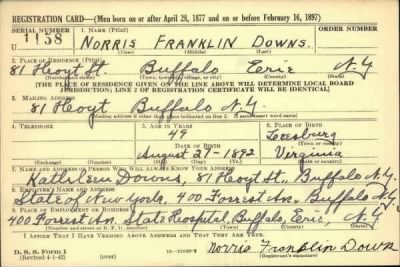 REGISTRATION CARD—(Men born on or after April 28, 1877 and on or before February 16, 1897)
SERIAL NUMBER 1. NAME (Print)
1138 NORRIS FRANKLIN DOWNS.
(First) (Middle) (Last)
2. PLACE OF RESIDENCE (Print)
81 Hoyt St. Buffalo Erie N.Y.
(Number and street) (Town, township, village, or city) (County) (State)
[THE PLACE OF RESIDENCE GIVEN ON THE LINE ABOVE WILL DETERMINE LOCAL BOARD
JURISDICTION; LINE 2 OF REGISTRATION CERTIFICATE WILL BE IDENTICAL]
3. MAILING ADDRESS
81 Hoyt Buffalo N.Y.
[Mailing address if other than place indicated on line 2. If same insert word same]
4. TELEPHONE 5. AGE IN YEARS 6. PLACE OF BIRTH
49 Leesburg
DATE OF BIRTH (Town or county)
August 1892 Virginia
(Exchange) (Number) (Mo.) (Day) (Yr.) (State or country)
7. NAME AND ADDRESS OF PERSON WHO WILL ALWAYS KNOW YOUR ADDRESS
Kathleen Downs, 81 Hoyt St., Buffalo N.Y.
8. EMPLOYER'S NAME AND ADDRESS
State of New York, 400 Forrest Av., Buffalo N.Y.
9. PLACE OF EMPLOYMENT OR BUSINESS
400 Forrest Av. State Hospital, Buffalo, Erie, N.Y.
(Number and street or R. F. D. number) (Town) (County) (State)
I AFFIRM THAT I HAVE VERIFIED ABOVE ANSWERS AND THAT THEY ARE TRUE.
D. S. S. Form 1
(Revised 4-1-42) (over) Norris Franklin Downs
(Registrant's signature)